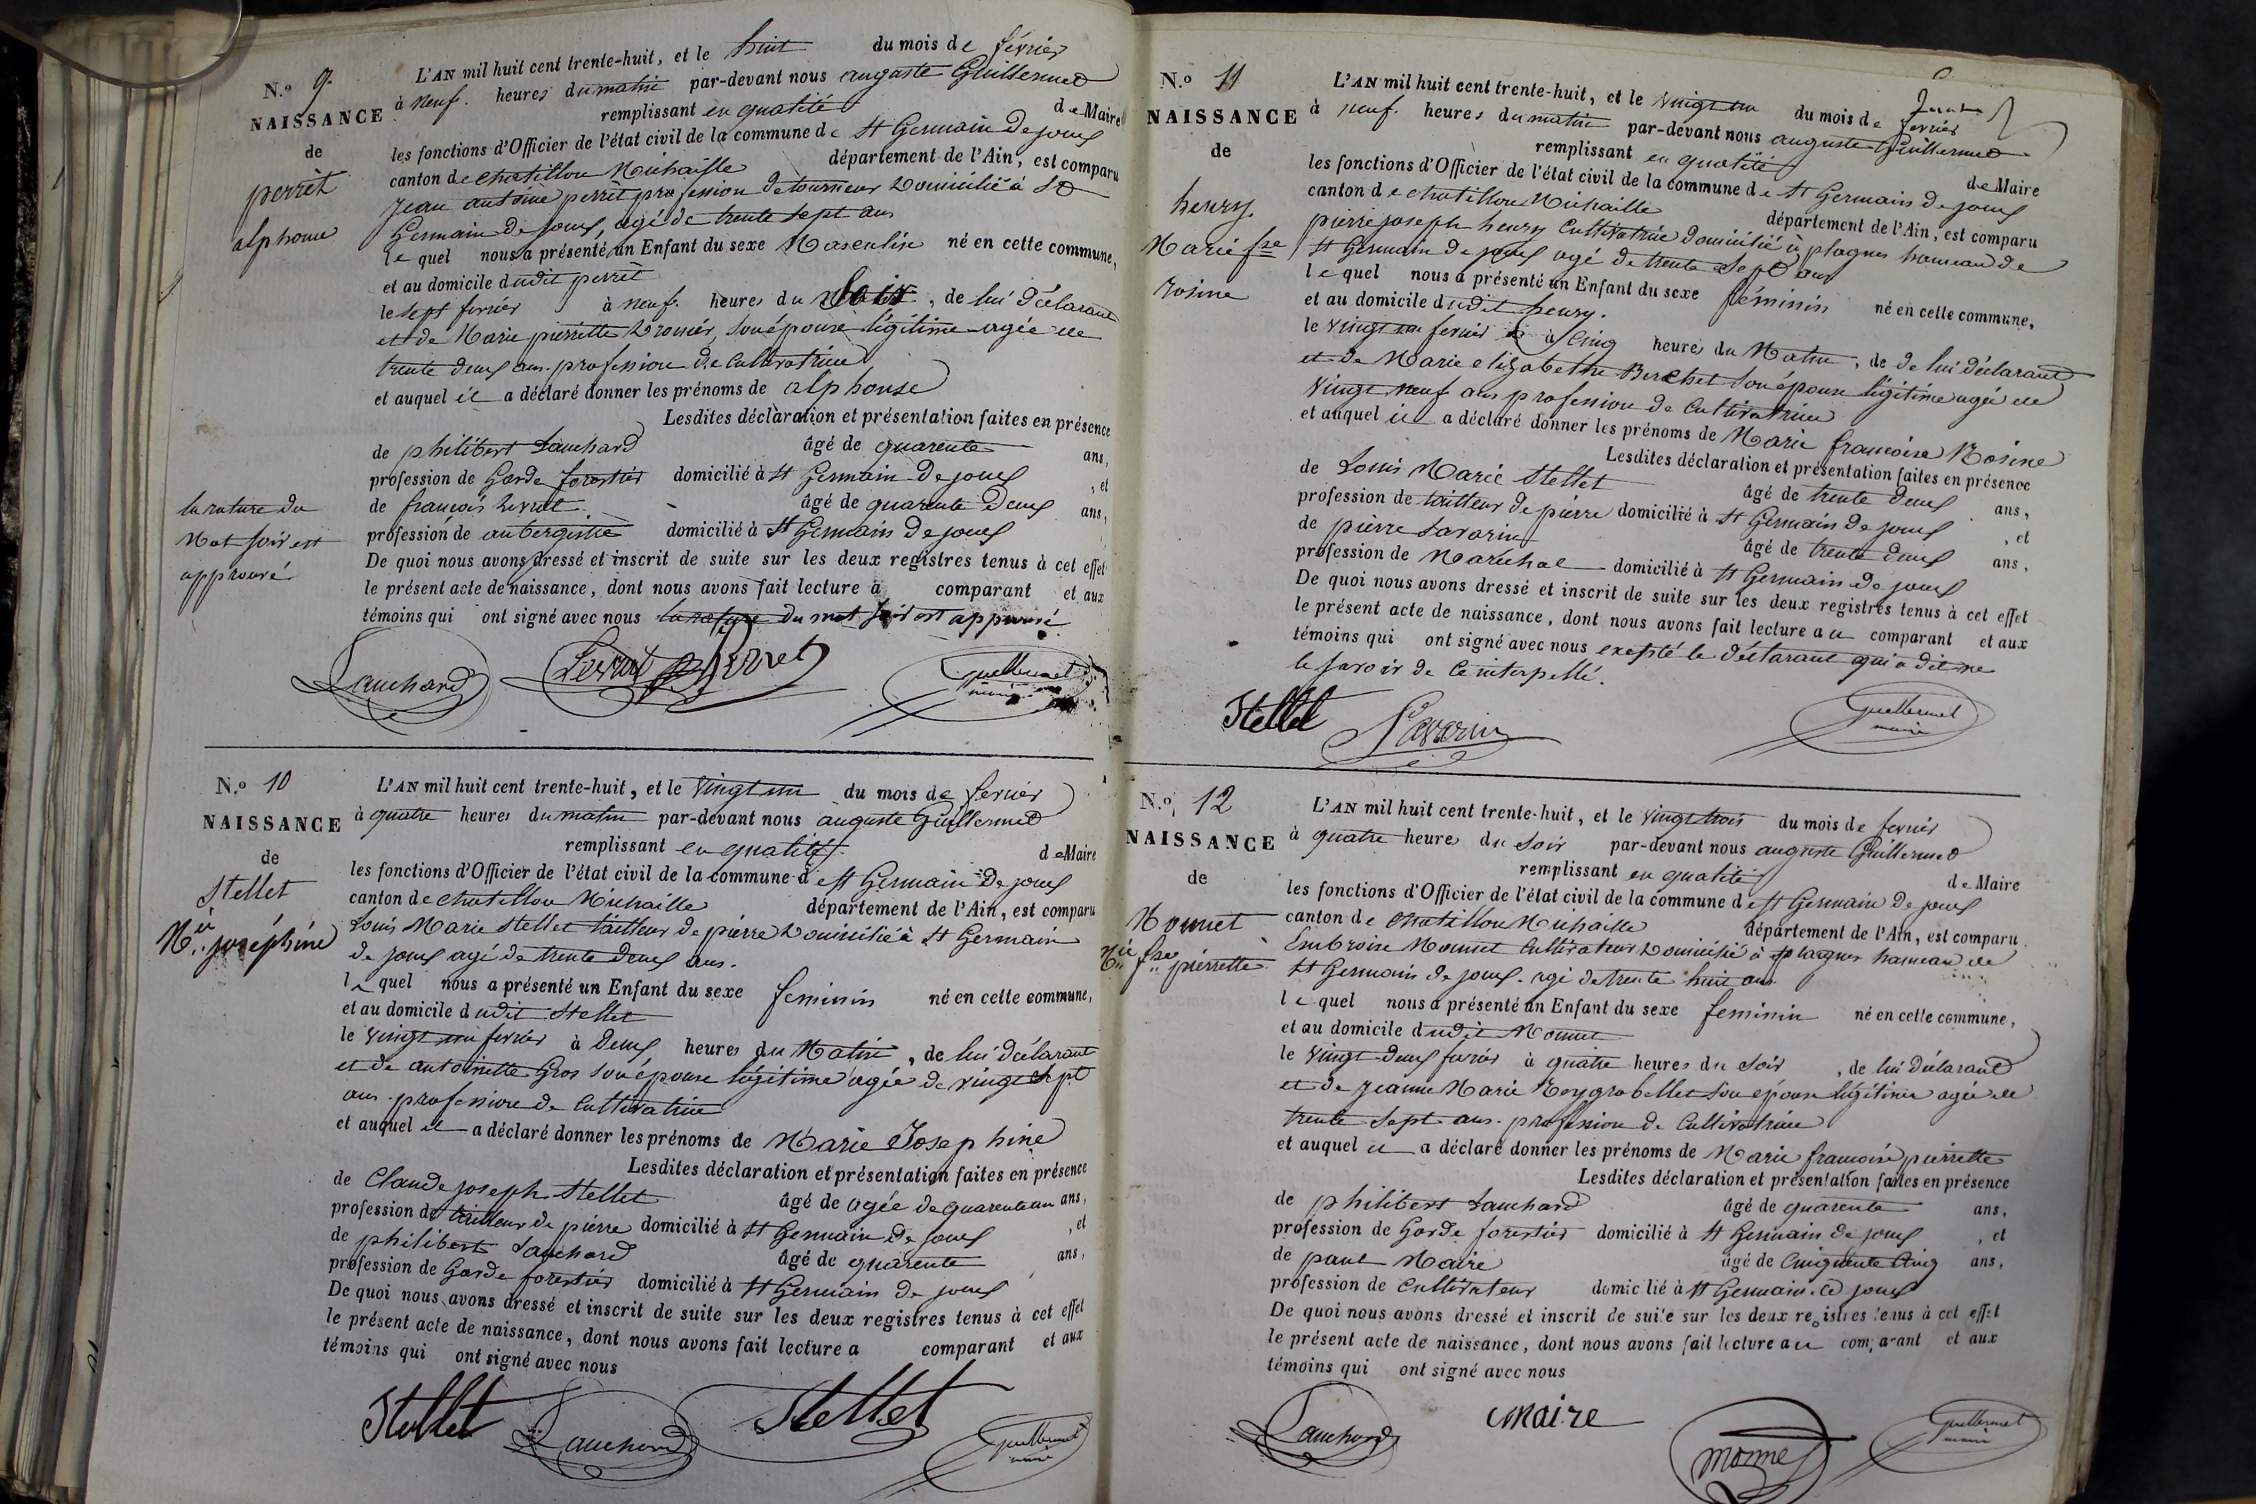 N.o 9
NAISSANCE
de
perret
alphonse
L'AN mil huit cent trente-huit, et le huit du mois de février
à neuf. heures du matin par-devant nous auguste Guillermet
remplissant en qualité de Maire
les fonctions d'Officier de l'état civil de la commune de St Germain De joux
canton de chatillon Michaille département de l'Ain, est comparu
jean antoine perret profession de tourneur Domicilié à St
Germain De joux, agé de trente sept ans
le quel nous a présenté un Enfant du sexe Masculin né en cette commune,
et au domicile dudit perret
le sept fevrier à neuf. heures du Soir, de lui déclarant
et de Marie pierrette son épouse légitime agée de
trente deux ans. profession de Cultivatrice
et auquel il a déclaré donner les prénoms de alphonse
Lesdites déclaration et présentation faites en présence
de philibert Lauchard âgé de quarente ans,
profession de Garde forestier domicilié à St Germain De joux, et
de françois Levrat âgé de quarente Deux ans,
profession de aubergiste domicilié à St Germain De joux
De quoi nous avons dressé et inscrit de suite sur les deux registres tenus à cet effet
le présent acte de naissance, dont nous avons fait lecture a comparant et aux
témoins qui ont signé avec nous la rature du mot soir est approuvé
la rature du
Mot soir est
approuvé
Lauchard Levrat Perret guillermet
maire
N.o 10
NAISSANCE
de
Stellet
M.ie joséphine
L'AN mil huit cent trente-huit, et le Vingt un du mois de fevrier
à quatre heures du matin par-devant nous auguste Guillermet
remplissant en qualité de Maire
les fonctions d'Officier de l'état civil de la commune de St Germain De joux
canton de chatillon Michaille département de l'Ain, est comparu
Louis Marie Stellet tailleur de pierre Domicilié à St Germain
de joux agé de trente Deux ans.
le quel nous a présenté un Enfant du sexe feminin né en cette commune,
et au domicile dudit Stellet
le vingt un fevrier à Deux heures du Matin, de lui déclarant
et de antoinette Gros son épouse légitime agée de vingt sept
ans. profession de Cultivatrice
et auquel il a déclaré donner les prénoms de Marie Josephine
Lesdites déclaration et présentation faites en présence
de Claude joseph Stellet âgé de agée de quarente un ans,
profession de tailleur de pierre domicilié à St Germain De joux, et
de philibert Lauchard âgé de quarente ans,
profession de Garde forestier domicilié à St Germain De joux
De quoi nous avons dressé et inscrit de suite sur les deux registres tenus à cet effet
le présent acte de naissance, dont nous avons fait lecture a comparant et aux
témoins qui ont signé avec nous
Stellet Lauchard Stellet guillermet
maire
N.o 11
NAISSANCE
de
henry
Marie fse
rosine
L'AN mil huit cent trente-huit, et le vingt un du mois de fevrier
à neuf. heures du matin par-devant nous auguste Guillermet
remplissant en qualité de Maire
les fonctions d'Officier de l'état civil de la commune de St Germain De joux
canton de chatillon Michaille département de l'Ain, est comparu
pierre joseph henry Cultivatrice Domicilié à plagnes hameau de
St Germain de joux agé de trente sept ans
le quel nous a présenté un Enfant du sexe féminin né en cette commune,
et au domicile dudit henry.
le vingt un fevrier à Cinq heures du Matin, de de lui déclarant
et de Marie elizabethe Berchet son épouse légitime agée de
vingt neuf ans profession de Cultivatrice
et auquel il a déclaré donner les prénoms de Marie francoise Rosine
Lesdites déclaration et présentation faites en présence
de Louis Marie Stellet âgé de trente deux ans,
profession de tailleur de pierre domicilié à St Germain De joux, et
de pierre Savarin âgé de trente deux ans,
profession de Maréchal domicilié à St Germain De joux
De quoi nous avons dressé et inscrit de suite sur les deux registres tenus à cet effet
le présent acte de naissance, dont nous avons fait lecture a u comparant et aux
témoins qui ont signé avec nous excepté le déclarant qui a dit ne
le savoir de ce interpellé.
Stellet Savarin guillermet
maire
N.o 12
NAISSANCE
de
Monnet
M.ie fse pierrette
L'AN mil huit cent trente-huit, et le vingt trois du mois de fevrier
à quatre heures du soir par-devant nous auguste Guillermet
remplissant en qualité de Maire
les fonctions d'Officier de l'état civil de la commune de St Germain De joux
canton de chatillon Michaille département de l'Ain, est comparu
Embroise Monnet Cultivateur Domicilié à plagnes hameau de
St Germain de joux. agé de trente huit ans
le quel nous a présenté un Enfant du sexe feminin né en cette commune,
et au domicile dudit Monnet
le vingt deux fevrier à quatre heures du soir, de lui déclarant
et de jeanne Marie son épouse légitime agée de
trente sept ans. profession de Cultivatrice
et auquel il a déclaré donner les prénoms de Marie francoise pierrette
Lesdites déclaration et présentation faites en présence
de philibert Lauchard âgé de quarente ans,
profession de Garde forestier domicilié à St Germain De joux, et
de paul Maire âgé de Cinquente Cinq ans,
profession de Cultivateur domicilié à St Germain De joux
De quoi nous avons dressé et inscrit de suite sur les deux registres tenus à cet effet
le présent acte de naissance, dont nous avons fait lecture a u comparant et aux
témoins qui ont signé avec nous
Lauchard maire monnet guillermet
maire